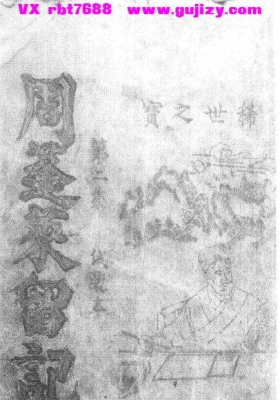 VX rbt7688 www.gujizy.com
稀世之寶
第二集
周蓬萊留記